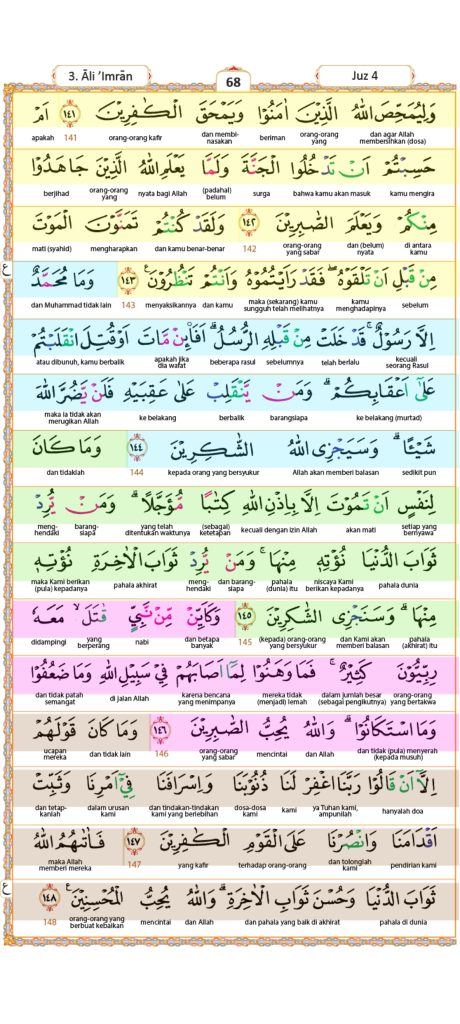 3. Āli 'Imrān
68
Juz 4
وَلِيُمَحِّصَ اللّٰهُ الَّذِيْنَ اٰمَنُوْا وَيَمْحَقَ الْكٰفِرِيْنَ ١٤١ اَمْ
dan agar Allah membersihkan (dosa) orang-orang yang beriman dan membinasakan orang-orang kafir 141 apakah
حَسِبْتُمْ اَنْ تَدْخُلُوا الْجَنَّةَ وَلَمَّا يَعْلَمِ اللّٰهُ الَّذِيْنَ جَاهَدُوْا
kamu mengira bahwa kamu akan masuk surga (padahal) belum nyata bagi Allah orang-orang yang berjihad
مِنْكُمْ وَيَعْلَمَ الصّٰبِرِيْنَ ١٤٢ وَلَقَدْ كُنْتُمْ تَمَنَّوْنَ الْمَوْتَ
di antara kamu dan (belum) nyata orang-orang yang sabar 142 dan kamu benar-benar mengharapkan mati (syahid)
مِنْ قَبْلِ اَنْ تَلْقَوْهُۖ فَقَدْ رَاَيْتُمُوْهُ وَاَنْتُمْ تَنْظُرُوْنَ ١٤٣ وَمَا مُحَمَّدٌ
ع
sebelum kamu menghadapinya maka (sekarang) kamu sungguh telah melihatnya dan kamu menyaksikannya 143 dan Muhammad tidak lain
اِلَّا رَسُوْلٌۚ قَدْ خَلَتْ مِنْ قَبْلِهِ الرُّسُلُۗ اَفَا۟ىِٕنْ مَّاتَ اَوْ قُتِلَ انْقَلَبْتُمْ
kecuali seorang Rasul telah berlalu sebelumnya beberapa rasul apakah jika dia wafat atau dibunuh, kamu berbalik
عَلٰٓى اَعْقَابِكُمْۗ وَمَنْ يَّنْقَلِبْ عَلٰى عَقِبَيْهِ فَلَنْ يَّضُرَّ اللّٰهَ
ke belakang (murtad) barangsiapa berbalik ke belakang maka ia tidak akan merugikan Allah
شَيْـًٔاۗ وَسَيَجْزِى اللّٰهُ الشّٰكِرِيْنَ ١٤٤ وَمَا كَانَ
sedikit pun Allah akan memberi balasan kepada orang yang bersyukur 144 dan tidaklah
لِنَفْسٍ اَنْ تَمُوْتَ اِلَّا بِاِذْنِ اللّٰهِ كِتٰبًا مُّؤَجَّلًاۗ وَمَنْ يُّرِدْ
setiap yang bernyawa akan mati kecuali dengan izin Allah (sebagai) ketetapan yang telah ditentukan waktunya barang-siapa meng-hendaki
ثَوَابَ الدُّنْيَا نُؤْتِهٖ مِنْهَاۚ وَمَنْ يُّرِدْ ثَوَابَ الْاٰخِرَةِ نُؤْتِهٖ
pahala dunia niscaya Kami berikan kepadanya pahala (dunia) itu dan barang-siapa meng-hendaki pahala akhirat maka Kami berikan (pula) kepadanya
مِنْهَاۗ وَسَنَجْزِى الشّٰكِرِيْنَ ١٤٥ وَكَاَيِّنْ مِّنْ نَّبِيٍّ قٰتَلَۙ مَعَهٗ
pahala (akhirat) itu dan Kami akan memberi balasan (kepada) orang-orang yang bersyukur 145 dan betapa banyak nabi yang berperang didampingi
رِبِّيُّوْنَ كَثِيْرٌۚ فَمَا وَهَنُوْا لِمَآ اَصَابَهُمْ فِيْ سَبِيْلِ اللّٰهِ وَمَا ضَعُفُوْا
orang-orang yang bertakwa dalam jumlah besar (sebagai pengikutnya) mereka tidak (menjadi) lemah karena bencana yang menimpanya di jalan Allah dan tidak patah semangat
وَمَا اسْتَكَانُوْاۗ وَاللّٰهُ يُحِبُّ الصّٰبِرِيْنَ ١٤٦ وَمَا كَانَ قَوْلَهُمْ
dan tidak (pula) menyerah (kepada musuh) dan Allah mencintai orang-orang yang sabar 146 dan tidak lain ucapan mereka
اِلَّآ اَنْ قَالُوْا رَبَّنَا اغْفِرْ لَنَا ذُنُوْبَنَا وَاِسْرَافَنَا فِيْٓ اَمْرِنَا وَثَبِّتْ
hanyalah doa ya Tuhan kami, ampunilah kami dosa-dosa kami dan tindakan-tindakan kami yang berlebihan dalam urusan kami dan tetap-kanlah
اَقْدَامَنَا وَانْصُرْنَا عَلَى الْقَوْمِ الْكٰفِرِيْنَ ١٤٧ فَاٰتٰىهُمُ اللّٰهُ
pendirian kami dan tolonglah kami terhadap orang-orang yang kafir 147 maka Allah memberi mereka
ثَوَابَ الدُّنْيَا وَحُسْنَ ثَوَابِ الْاٰخِرَةِۗ وَاللّٰهُ يُحِبُّ الْمُحْسِنِيْنَ ١٤٨
ع
pahala di dunia dan pahala yang baik di akhirat dan Allah mencintai orang-orang yang berbuat kebaikan 148